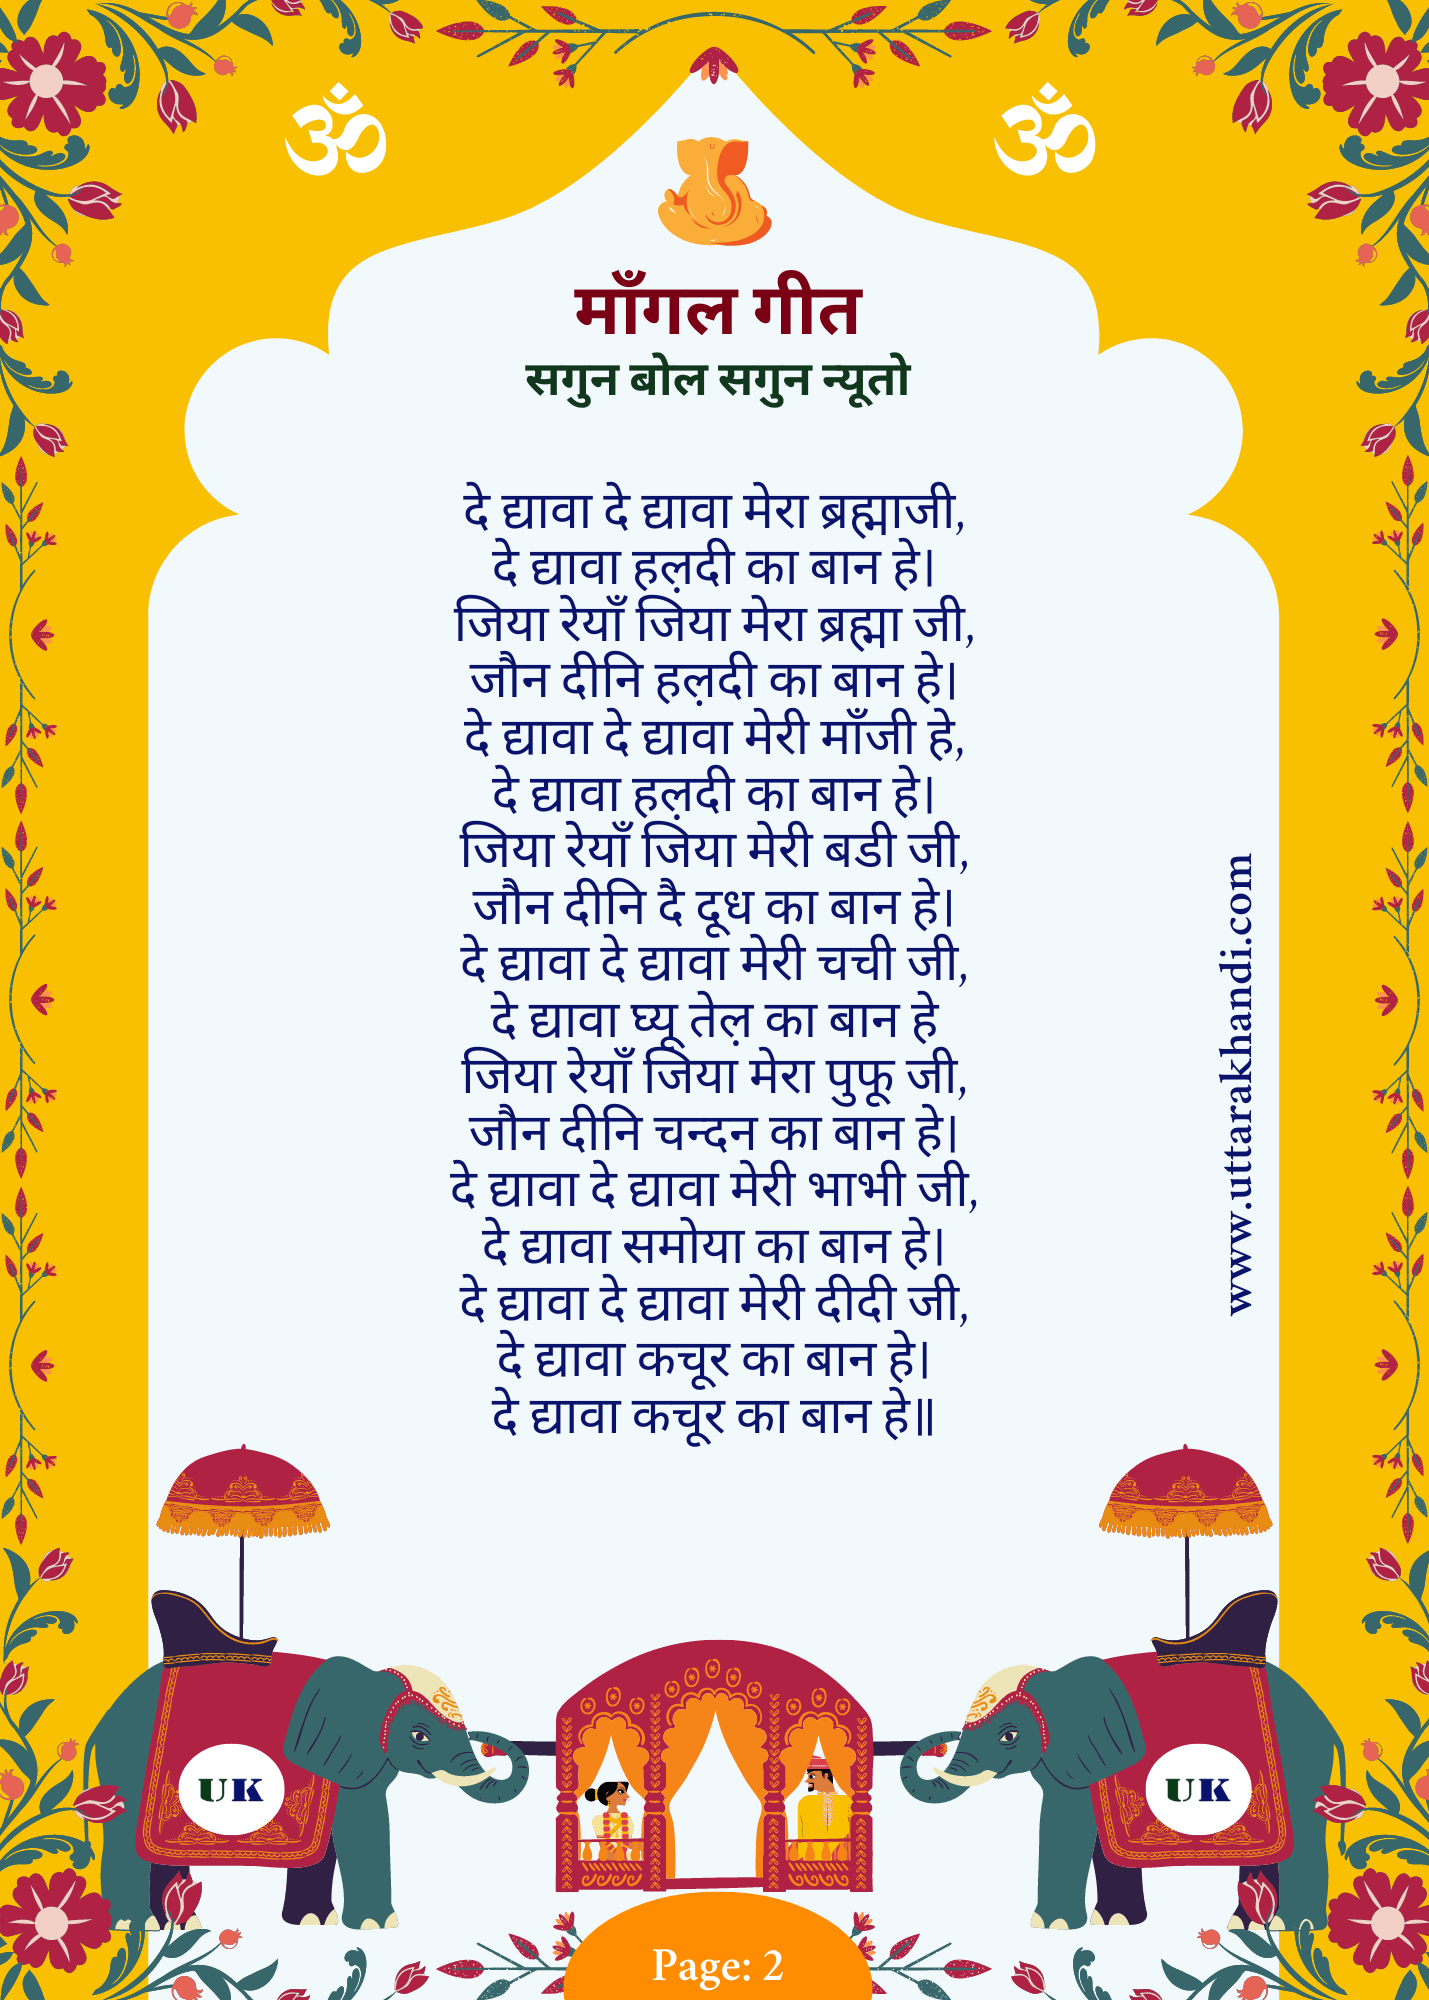 ॐ
ॐ
माँगल गीत
सगुन बोल सगुन न्यूतो
दे द्यावा दे द्यावा मेरा ब्रह्माजी,
दे द्यावा हऴदी का बान हे।
जिया रेयाँ जिया मेरा ब्रह्मा जी,
जौन दीनि हऴदी का बान हे।
दे द्यावा दे द्यावा मेरी माँजी हे,
दे द्यावा हऴदी का बान हे।
जिया रेयाँ जिया मेरी बडी जी,
जौन दीनि दै दूध का बान हे।
दे द्यावा दे द्यावा मेरी चची जी,
दे द्यावा घ्यू तेल़ का बान हे
जिया रेयाँ जिया मेरा पुफू जी,
जौन दीनि चन्दन का बान हे।
दे द्यावा दे द्यावा मेरी भाभी जी,
दे द्यावा समोया का बान हे।
दे द्यावा दे द्यावा मेरी दीदी जी,
दे द्यावा कचूर का बान हे।
दे द्यावा कचूर का बान हे॥
www.uttarakhandi.com
UK
UK
Page: 2